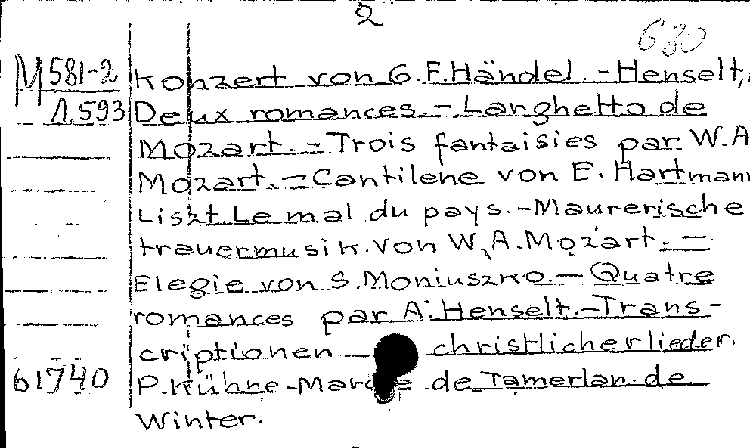 2
630
M 581-2
1.593
Konzert von G.F.Händel.-Henselt,
Deux romances.-Larghetto de
Mozart.-Trois fantaisies par W.A
Mozart.-Cantilene von E. Hartmann
Liszt Le mal du pays.-Maurerische
trauermusik.von W.A.Mozart.-
Elegie von S.Moniuszko.-Quatre
romances par A.Henselt.-Trans-
criptionen - christlicher lieder.
61740
P.Kühne-Marche de Tamerlan.de
Winter.